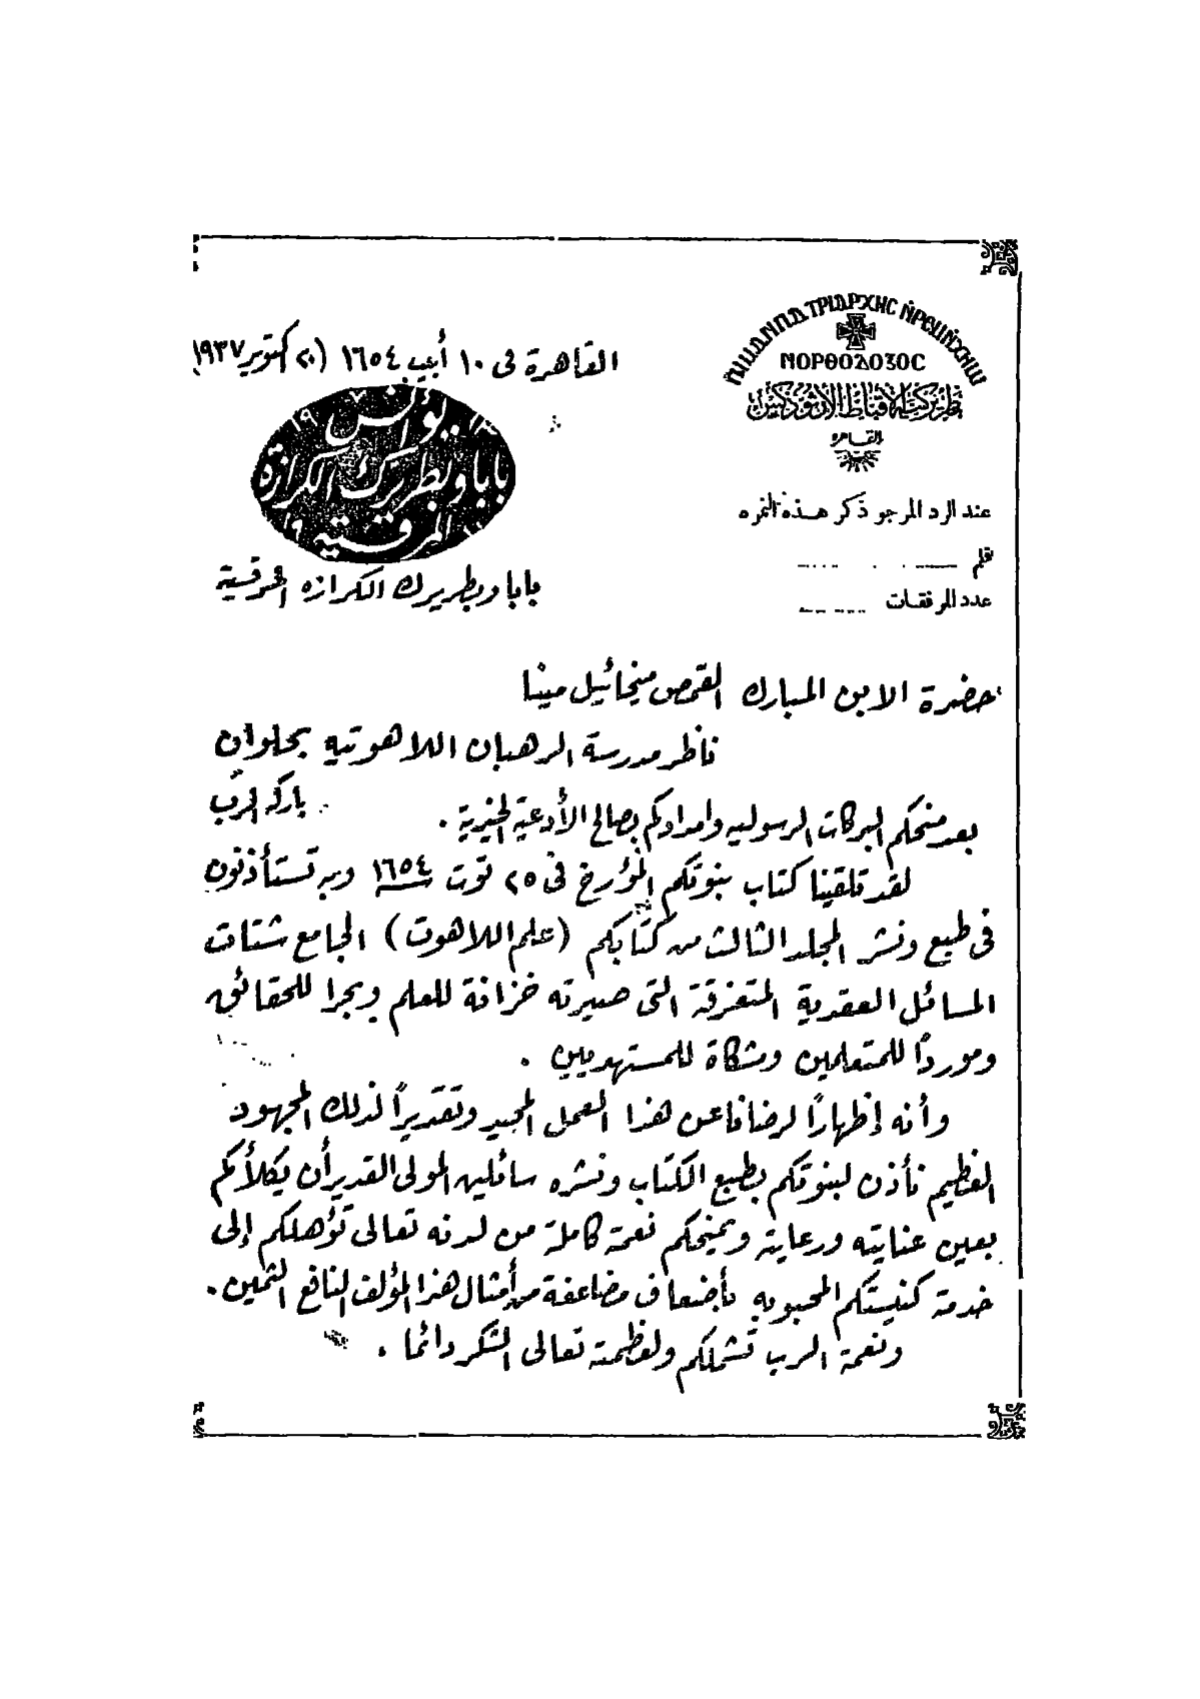 ϮⲞⲢⲐⲞⲆⲞⲜⲞⲤ
بطريركية الأقباط الأرثوذكس
القاهرة
عند الرد المرجو ذكر هذه النمره
قلم
عدد المرفقات
القاهرة فى ١٠ أبيب ١٦٥٤ (٢٠ أكتوبر ١٩٣٧
يؤانس
بابا وبطريرك الكرازة
المرقسية
بابا وبطريرك الكرازه المرقسية
حضرة الابن المبارك القمص ميخائيل مينا
ناظر مدرسة الرهبان اللاهوتيه بحلوان
باركه الرب
بعد منحكم البركات الرسوليه وامدادكم بصالح الأدعية الخيرية .
لقد تلقينا كتاب بنوتكم المؤرخ فى ٢٥ توت سنة ١٦٥٤ وبه تستأذنون
فى طبع ونشر المجلد الثالث من كتابكم (علم اللاهوت) الجامع شتات
المسائل العقدية المتفرقة التى صيرته خزانة للعلم وبحرا للحقائق
وموردًا للمتعلمين ومشكاة للمستهديين .
وأنه إظهارًا لرضانا عن هذا العمل المجيد وتقديرًا لذلك المجهود
العظيم نأذن لبنوتكم بطبع الكتاب ونشره سائلين المولى القدير أن يكلأكم
بعين عنايته ورعايته ويمنحكم نعمة كاملة من لدنه تعالى تؤهلكم إلى
خدمة كنيستكم المحبوبه بأضعاف مضاعفة من أمثال هذا المؤلف النافع الثمين .
ونعمة الرب تشملكم ولعظمته تعالى الشكر دائما .